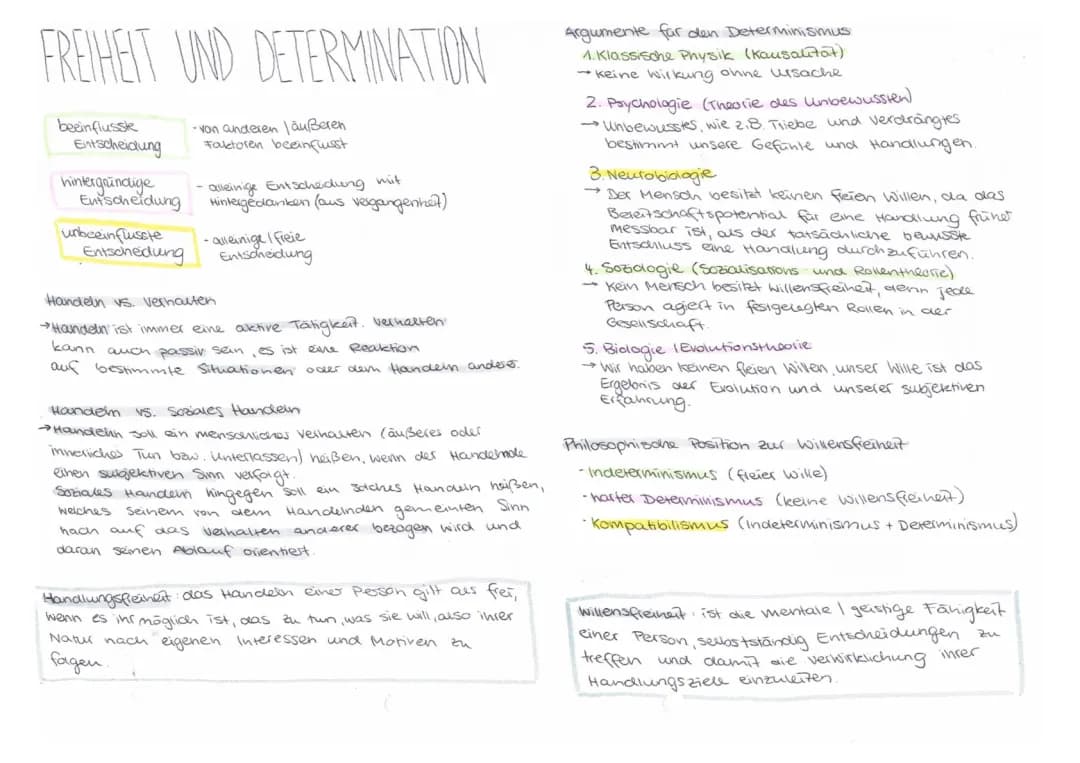 FREIHEIT UND DETERMINATION
beeinflusste
Entscheidung
- von anderen / äußeren
Faktoren beeinflusst
hintergründige
Entscheidung
- alleinige Entscheidung mit
Hintergedanken (aus Vergangenheit)
unbeeinflusste
Entscheidung
- alleinige / freie
Entscheidung
Handeln vs. Verhalten
→ Handeln ist immer eine aktive Tätigkeit. Verhalten
kann auch passiv sein, es ist eine Reaktion
auf bestimmte Situationen oder dem Handeln anderer.
Handeln vs. Soziales Handeln
→ Handeln soll ein menschliches Verhalten (äußeres oder
innerliches Tun bzw. Unterlassen) heißen, wenn der Handelnde
einen subjektiven Sinn verfolgt.
Soziales Handeln hingegen soll ein solches Handeln heißen,
welches seinem von dem Handelnden gemeinten Sinn
nach auf das Verhalten anderer bezogen wird und
daran seinen Ablauf orientiert.
Handlungsfreiheit: das Handeln einer Person gilt als frei,
wenn es ihr möglich ist, das zu tun, was sie will, also ihrer
Natur nach eigenen Interessen und Motiven zu
folgen.
Argumente für den Determinismus
1. Klassische Physik (Kausalität)
→ Keine Wirkung ohne Ursache
2. Psychologie (Theorie des Unbewussten)
→ Unbewusstes, wie z.B. Triebe und Verdrängtes
bestimmt unsere Gefühle und Handlungen.
3. Neurobiologie
→ Der Mensch besitzt keinen freien Willen, da das
Bereitschaftspotential für eine Handlung früher
messbar ist, als der tatsächliche bewusste
Entschluss eine Handlung durchzuführen.
4. Soziologie (Sozialisations- und Rollentheorie)
→ Kein Mensch besitzt Willensfreiheit, denn jede
Person agiert in festgelegten Rollen in der
Gesellschaft.
5. Biologie / Evolutionstheorie
→ Wir haben keinen freien Willen, unser Wille ist das
Ergebnis der Evolution und unserer subjektiven
Erfahrung.
Philosophische Position zur Willensfreiheit
- Indeterminismus (freier Wille)
- harter Determinismus (keine Willensfreiheit)
- Kompatibilismus (Indeterminismus + Determinismus)
Willensfreiheit: ist die mentale / geistige Fähigkeit
einer Person, selbstständig Entscheidungen zu
treffen und damit die Verwirklichung ihrer
Handlungsziele einzuleiten.